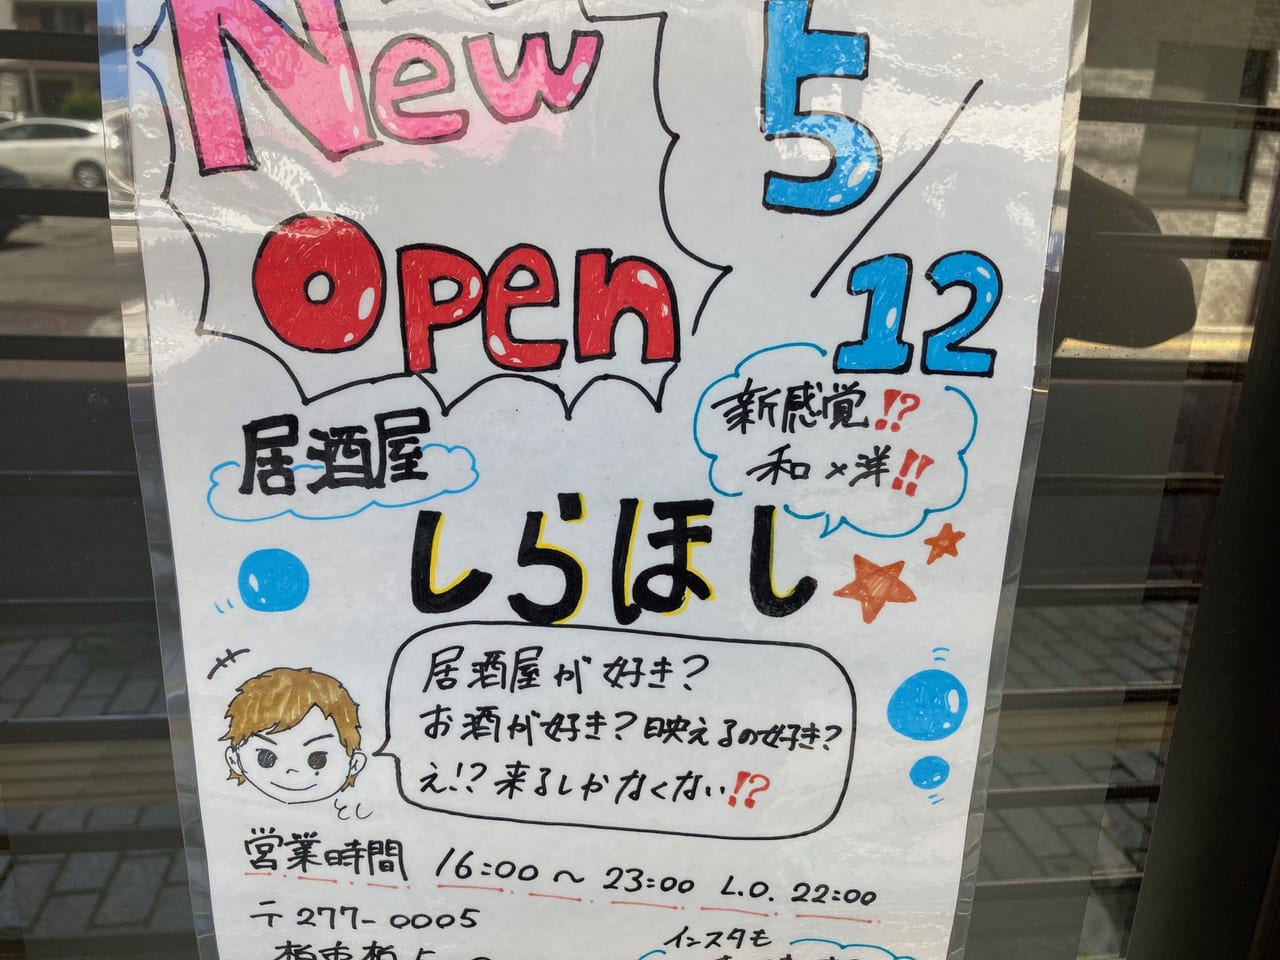 New
Open
5/12
居酒屋
新感覚!?
和×洋!!
しらほし
居酒屋が好き?
お酒が好き?映えるの好き?
え!?来るしかなくない!?
とし
営業時間 16:00~23:00 L.O. 22:00
〒277-0005
インスタも